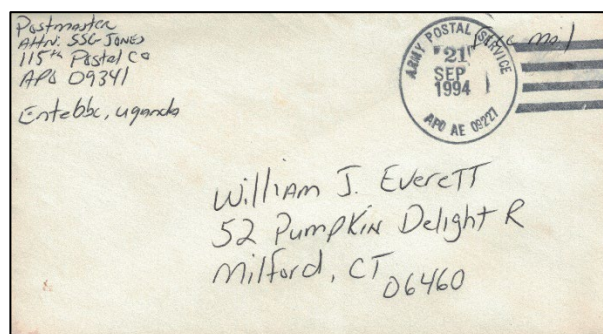 Postmaster
Attn: SSG JONES
115th Postal Co
APO 09341
Entebbe, Uganda
ARMY POSTAL SERVICE
21
SEP
1994
APO AE 09227
Free Mail
William J. Everett
52 Pumpkin Delight R
Milford, CT
06460